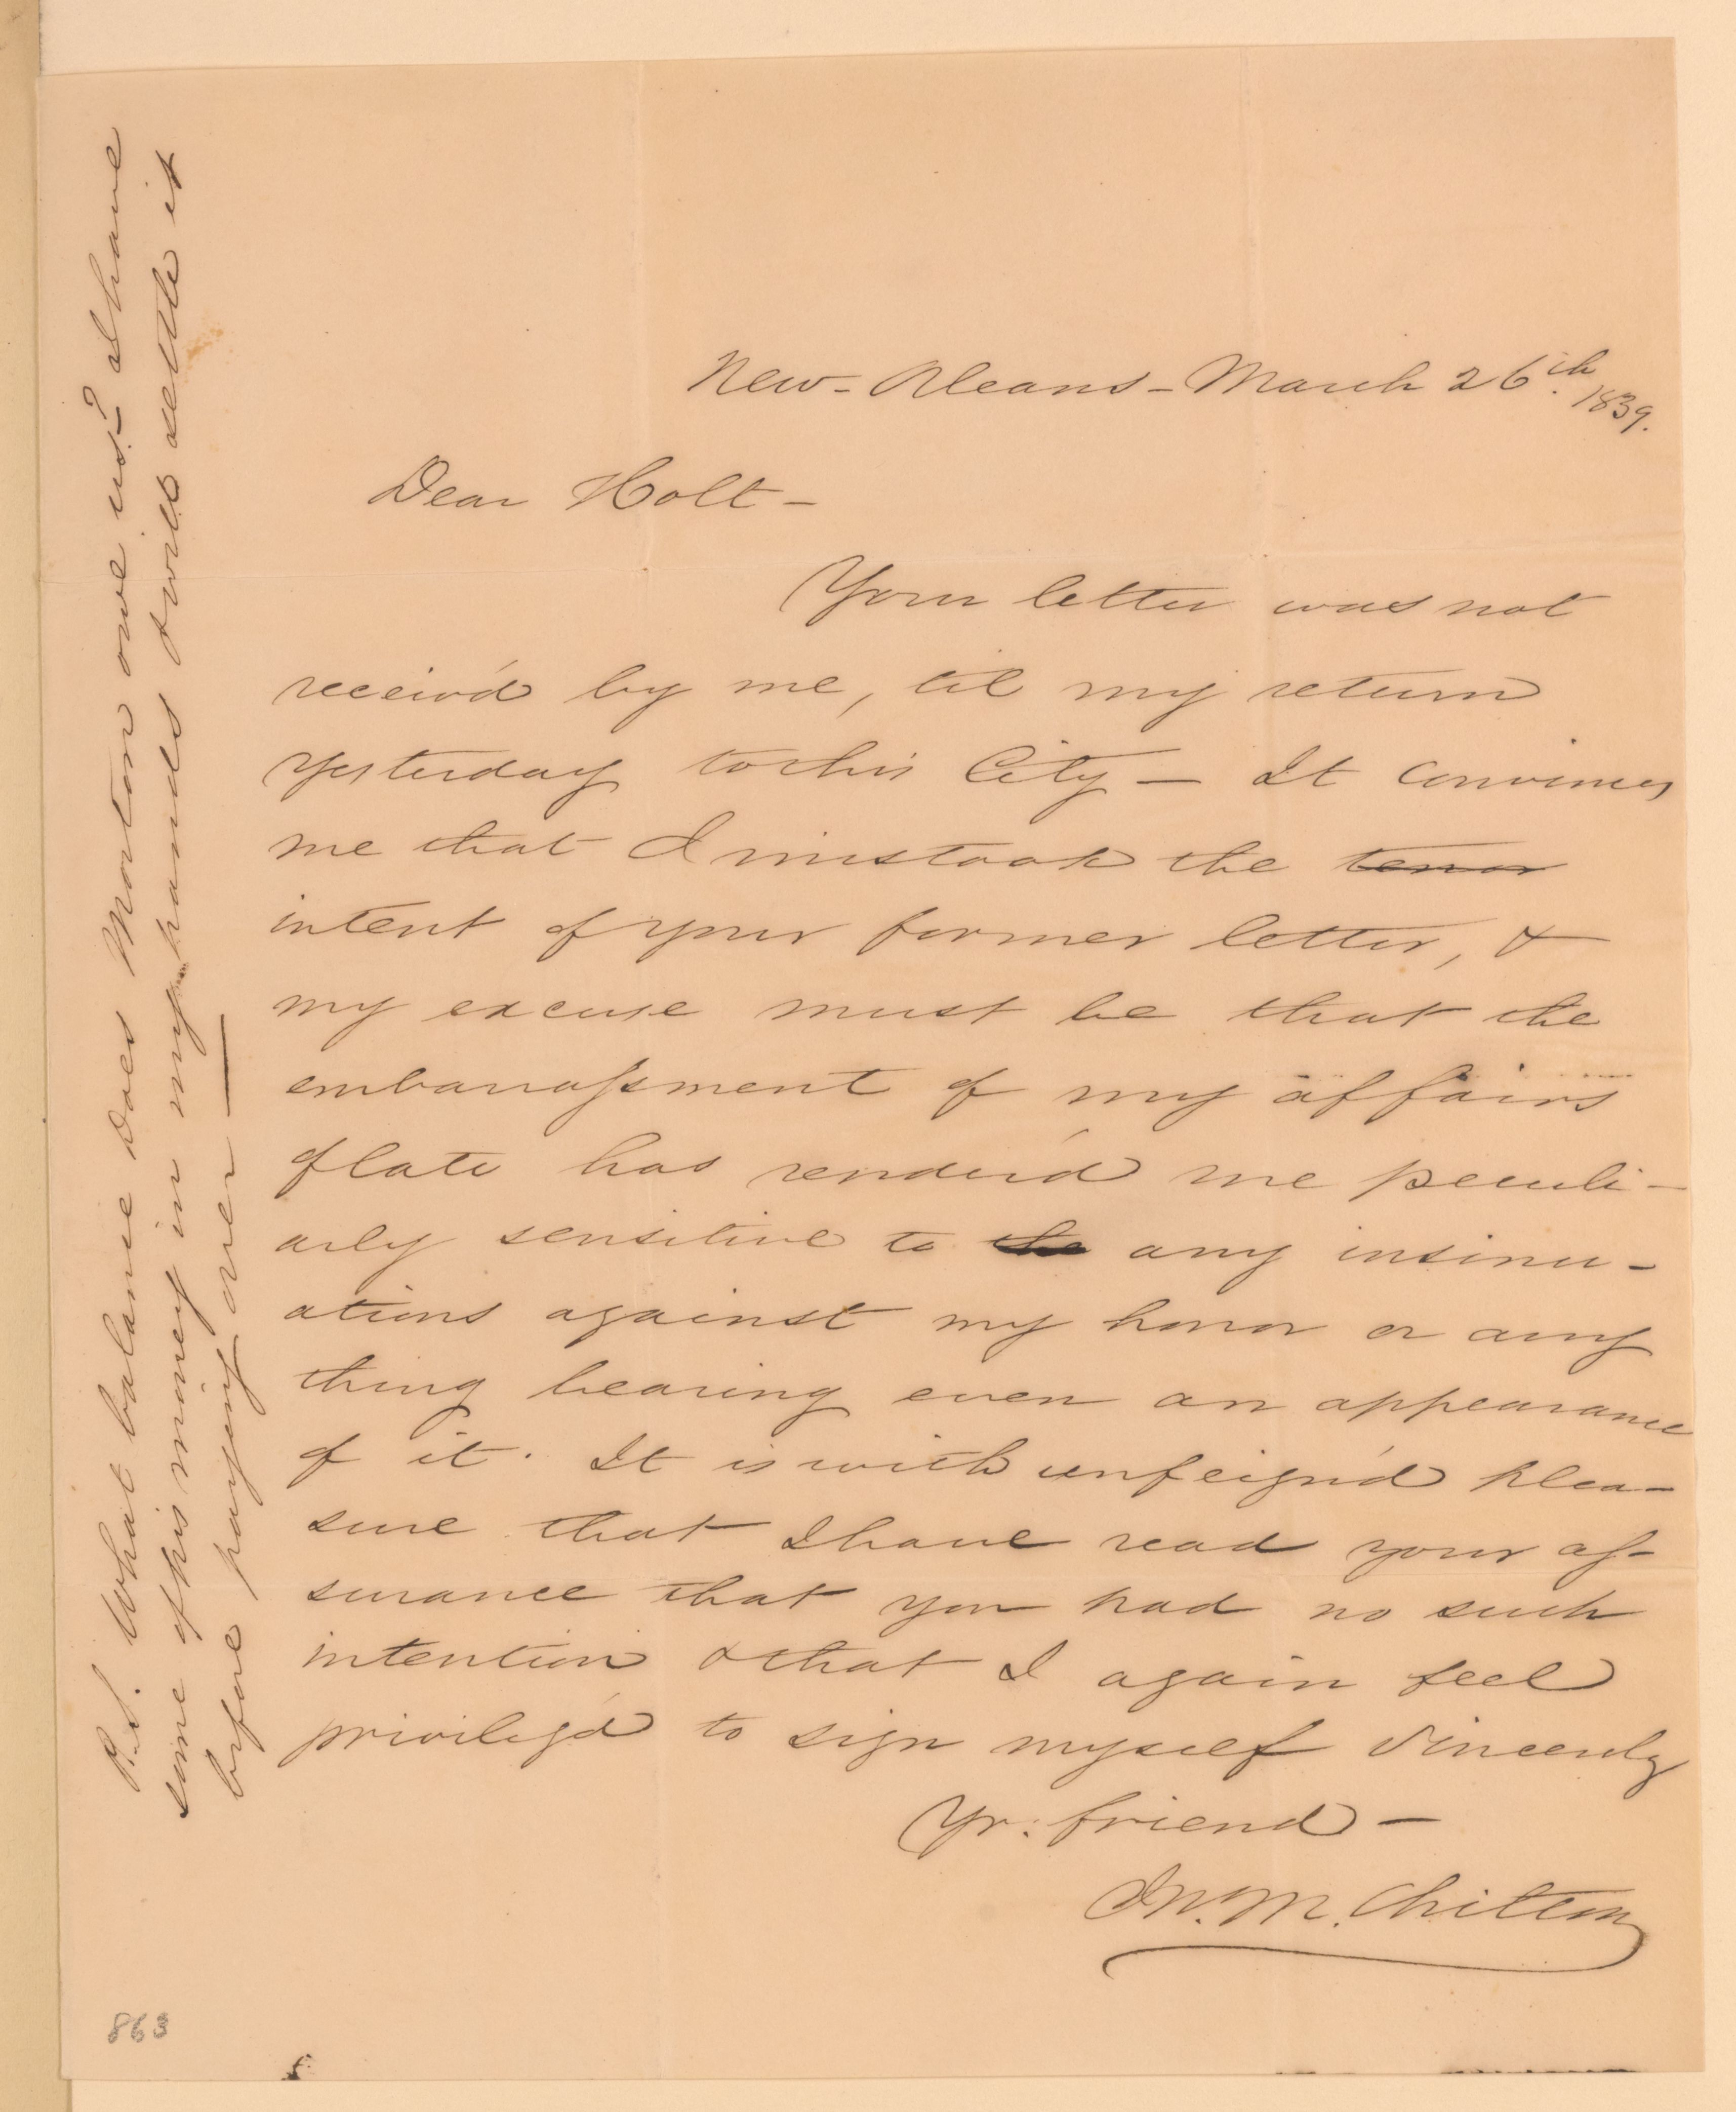 New-Orleans - March 26th. 1839.
Dear Holt -
Your letter was not
receiv'd by me, til my return
yesterday to this City - It convinces
me that I mistook the tenor
intent of your former letter, &
my excuse must be that the
embarrassment of my affairs
of late has render'd me peculi-
arly sensitive to the any insinu-
ations against my honor or any
thing bearing even an appearance
of it. It is with unfeign'd plea-
sure that I have read your as-
surance that you had no such
intention & that I again feel
privileg'd to sign myself sincerely
Yr: friend -
M. Chilton
P.S. What balance does Morton owe us? I have
some of his money in my hands & wild settle it
before paying over -
863